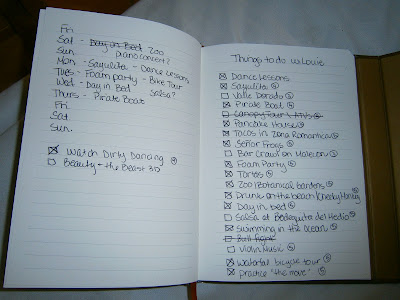 Fri
Sat - Day in Bed Zoo
Sun piano concert?
Mon - Sayulita - Dance Lessons
Tues - Foam party - Bike Tour
Wed - Day in Bed Salsa?
Thurs - Pirate Boat
Fri
Sat
Sun.
Watch Dirty Dancing
Beauty + the Beast 3D
Things to do w Louie
Dance Lessons
Sayulita
Valle Dorado
Pirate Boat
Canopy Tour \ ATVs
Pancake House
Tacos in Zona Romantica
Señor Frogs
Bar Crawl on Malecon
Foam Party
Tortas
Zoo \ Botanical Gardens
Drunk on the beach
Day in bed
Salsa at Bodeguita del Medio
Swimming in the Ocean
Bull Fight
Violin Music
Waterfall bicycle tour
practice "the move"